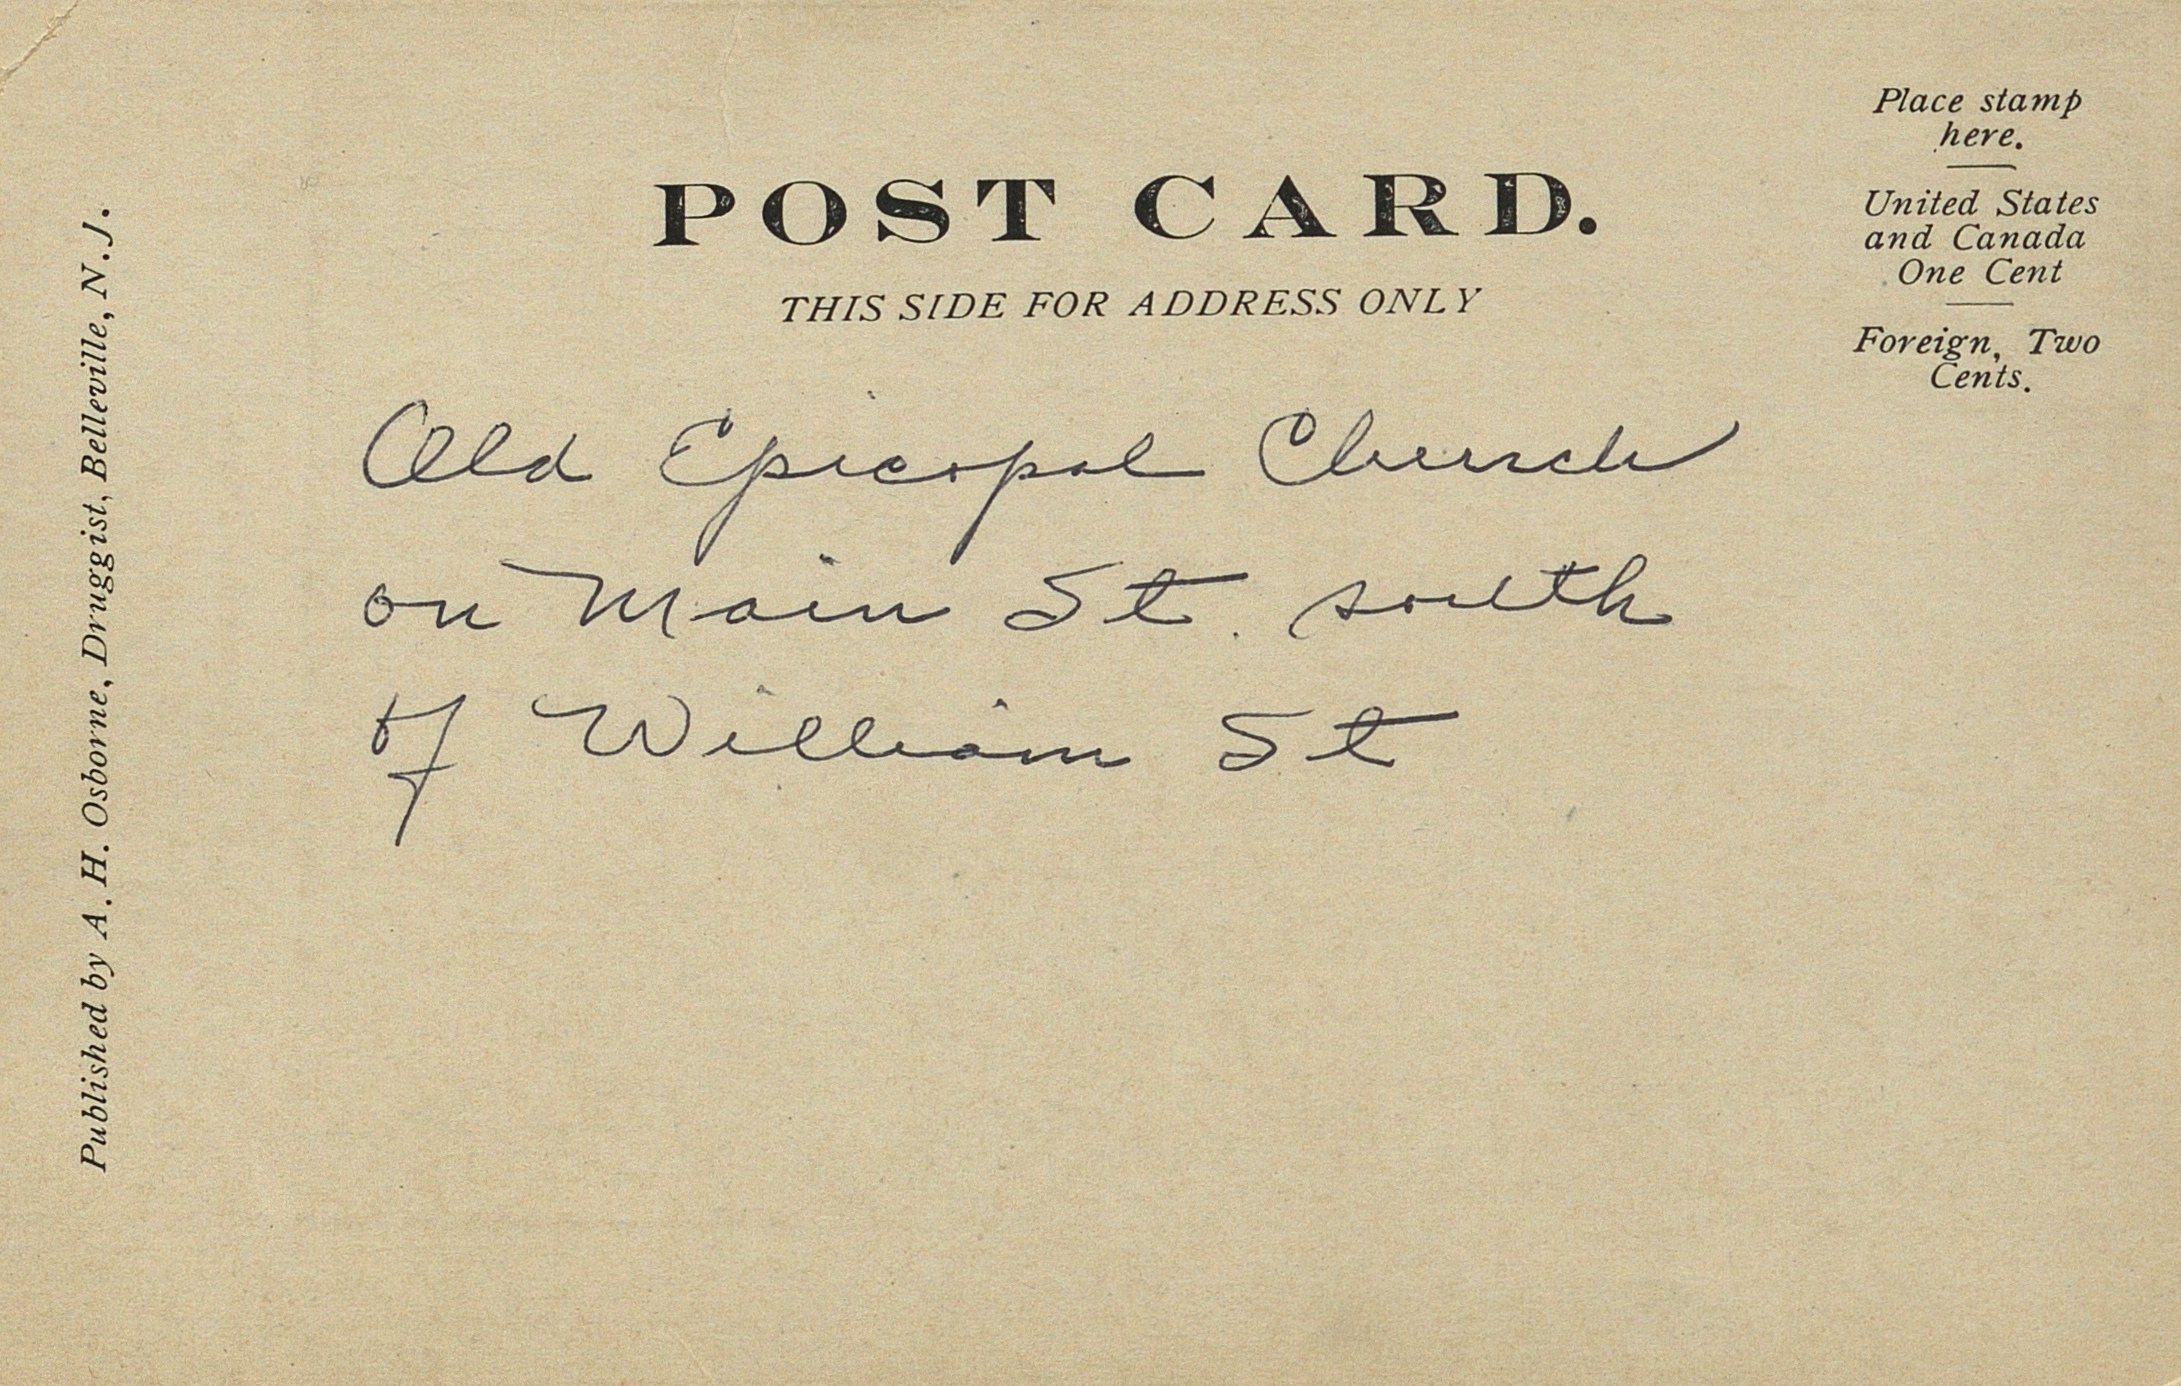 Place stamp
here.
POST CARD.
United States
and Canada
One Cent
THIS SIDE FOR ADDRESS ONLY
Foreign, Two
Cents.
Old Epicopal Church
on Main St. south
of William St
Published by A. H. Osborne, Druggist, Belleville, N.J.